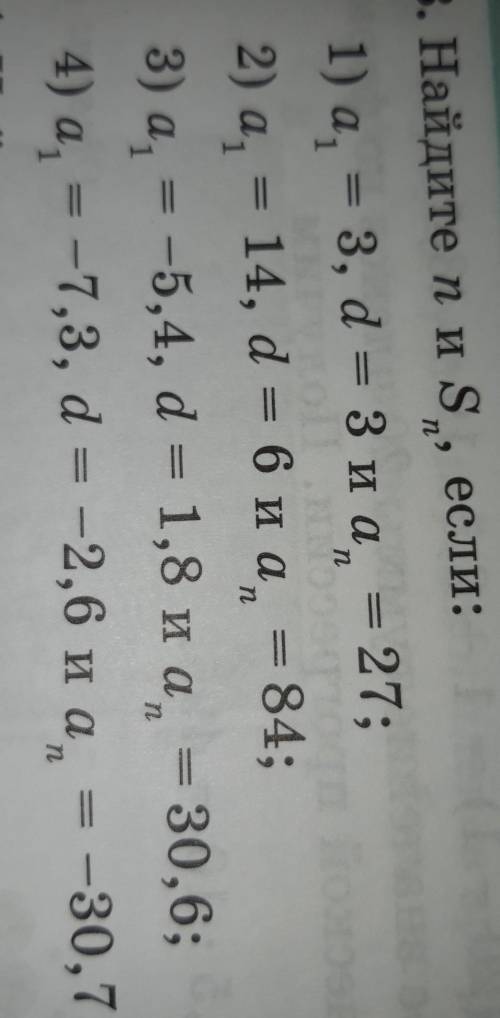 . Найдите n и Sₙ, если:
1) a₁ = 3, d = 3 и aₙ = 27;
2) a₁ = 14, d = 6 и aₙ = 84;
3) a₁ = −5,4, d = 1,8 и aₙ = 30,6;
4) a₁ = −7,3, d = −2,6 и aₙ = −30,7